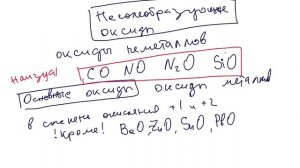 Несолеобразующие
оксиды
оксиды неметаллов
Наизуст CO NO N₂O SiO
Основные оксиды оксиды металлов
в степени окисления +1 и +2
!Кроме! BeO, ZnO, SnO, PbO